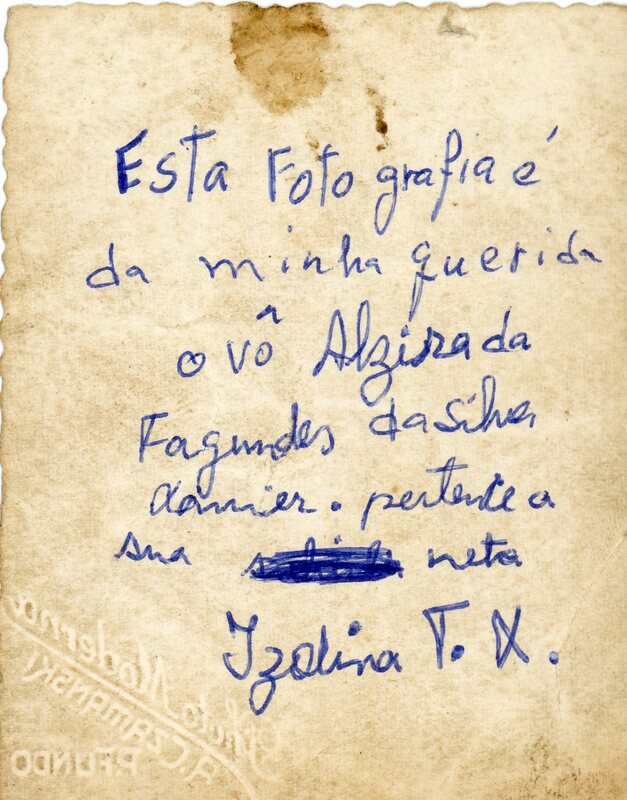 Esta Foto grafia é
da minha querida
o vô Alzira da
Fagundes da Silva
Xavier. pertence a
sua neta
Izolina T. X.
Photo Moderna
A. CZAMANSKI
P. FUNDO